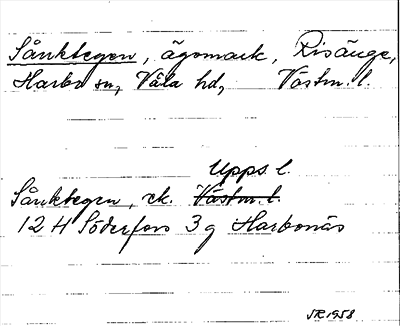 Sånktegen, ägomark, Risänge,
Harbo sn, Våla hd, Västm. l.
Upps. l.
Sånktegen, ek. Västm. l.
12 H Söderfors 3 g Harbonäs
SR 1958